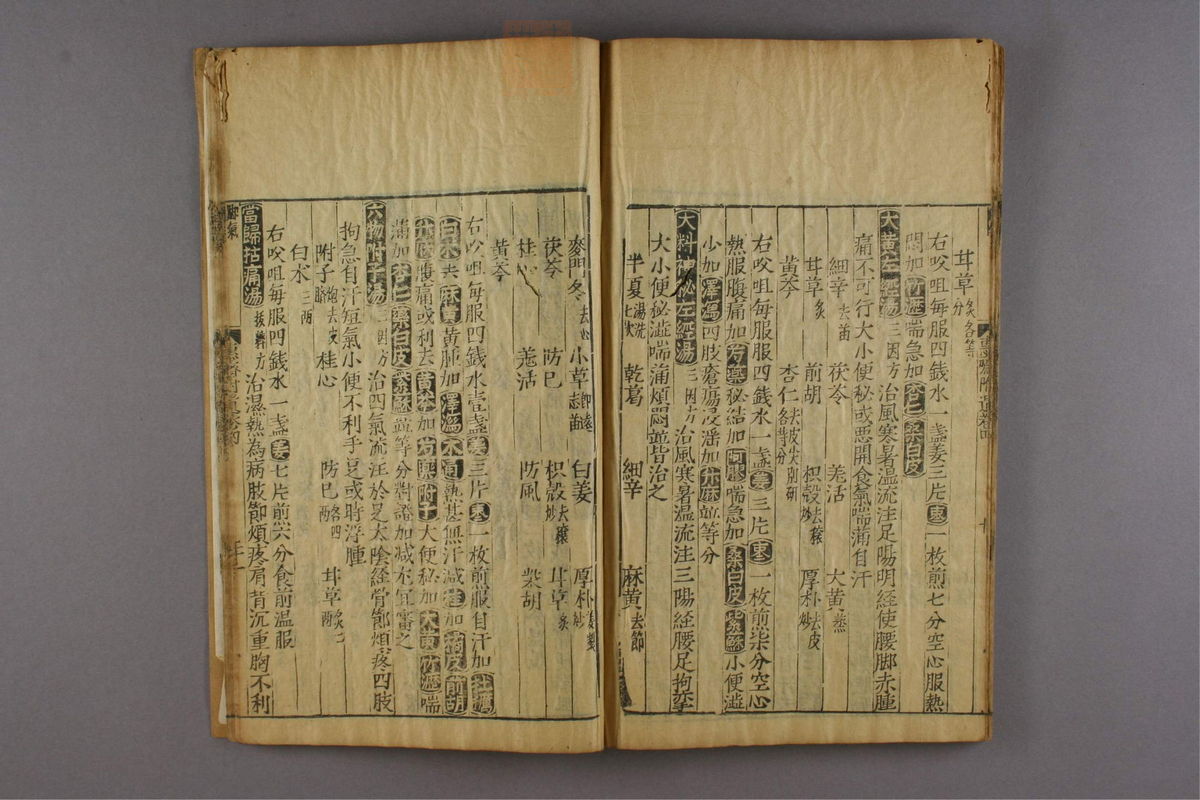 甘草炙各等分
右㕮咀每服四錢水一盞姜三片棗一枚煎七分空心服熱
悶加竹瀝喘急加杏仁桑白皮
大黃左經湯三因方治風寒暑濕流注足陽明經使腰脚赤腫
痛不可行大小便秘或惡聞食氣喘滿自汗
細辛去苗 茯苓 羗活 大黃蒸
甘草炙 前胡 枳殼去穰炒 厚朴去皮炒
黃芩 杏仁去皮尖別研各等分
右㕮咀每服四錢水一盞姜三片棗一枚煎柒分空心
熱服腹痛加芍藥秘結加阿膠喘急加桑白皮紫蘇小便澁
少加澤瀉四肢瘡瘍浸淫加升麻並等分
大料神秘左經湯三因方治風寒暑濕流注三陽經腰足拘攣
大小便秘澁喘滿煩悶並皆治之
半夏湯洗七次 乾葛 細辛 麻黃去節
麥門冬去心 小草即遠志苗 白姜 厚朴姜製炒
茯苓 防巳 枳殼去穰炒 甘草炙
桂心 羗活 防風 柴胡
黃芩
右㕮咀每服四錢水壹盞姜三片棗一枚煎服自汗加牡蠣
白朮去麻黃黃腫加澤瀉木通熱甚無汗減桂加橘皮前胡
升麻腹痛或利去黃芩加芍藥附子大便秘加大黃竹瀝喘
滿加杏仁桑白皮紫蘇並等分對證加減尤宜審之
六物附子湯三因方治四氣流注於足太陰經骨節煩疼四肢
拘急自汗短氣小便不利手足或時浮腫
附子炮去皮臍 桂心 防巳各四兩 甘草炙二兩
白朮三兩
右㕮咀每服四錢水一盞姜七片煎六分食前溫服
當歸拈痛湯拔粹方治濕熱為病肢節煩疼肩背沉重胸不利
脚氣